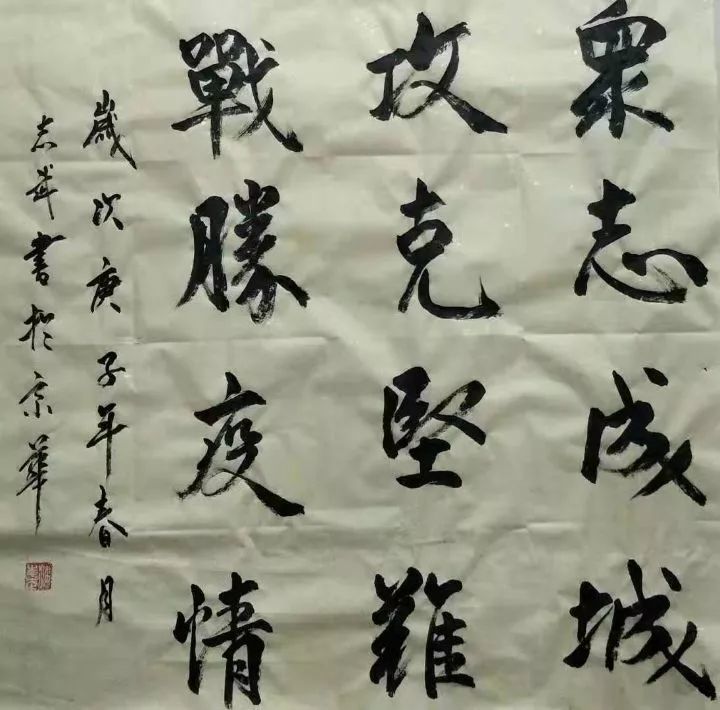 眾志成城
攻克堅難
戰勝疫情
歲次庚子年春月
志華書於京華